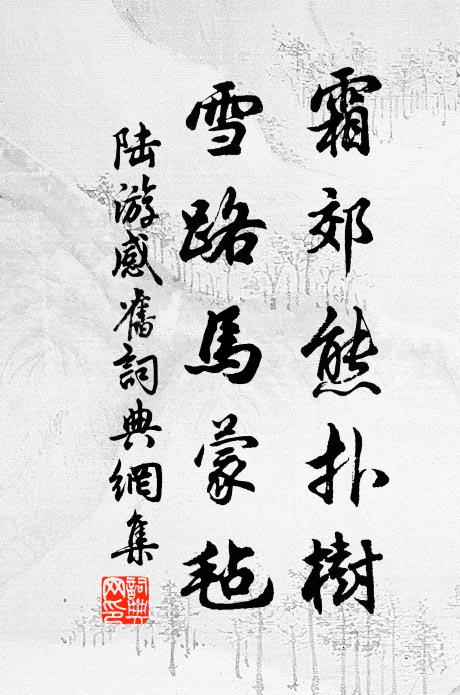 霜郊熊扑樹
雪路馬蒙毡
陆游感舊詞典網集
詞典网印